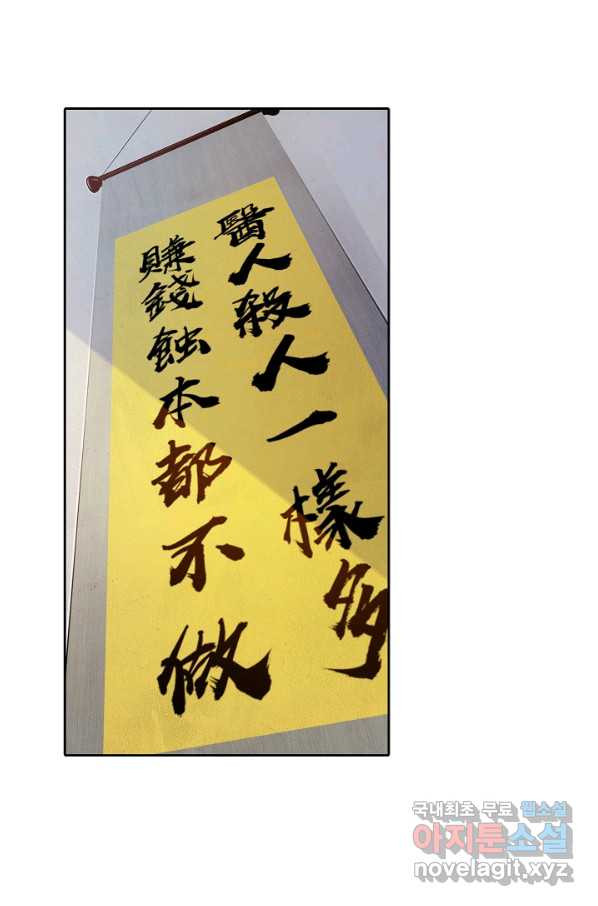 醫人殺人一樣多
賺錢蝕本都不做
국내최초 무료 웹소설
아지툰소설
novelagit.xyz